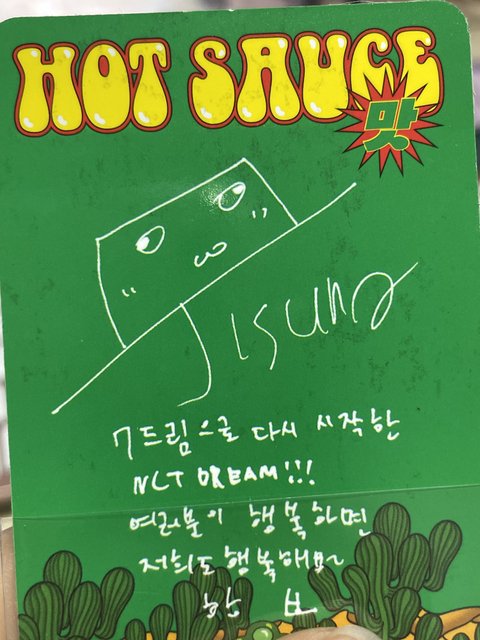 HOT SAUCE
맛
Jisung
7드림으로 다시 시작한
NCT DREAM!!!
여러분이 행복하면
저희도 행복해요~